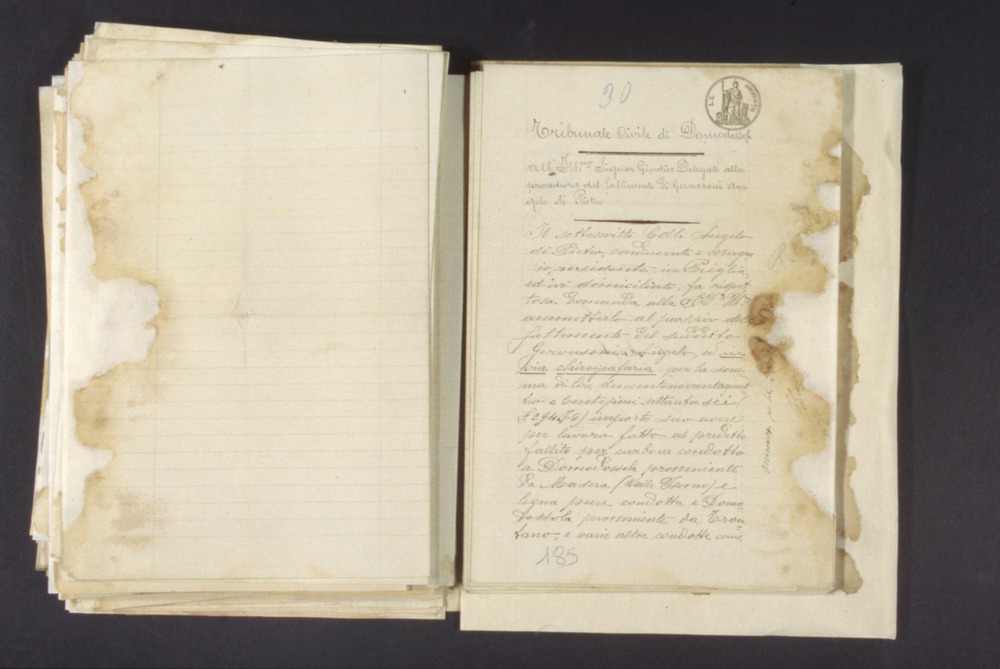 30
Tribunale Civile di Domodossola
All'Ill.mo Signor Giudice Delegato alla
procedura del fallimento di Gervasoni An
gelo di Pietro
Il sottoscritto Colli Angelo
di Pietro, conducente e
residente in
ed ivi domiciliato, fa rispet
tosa domanda alla
ammetterlo al passivo del
fallimento del suddetto
Gervasoni Angelo, in
via chirografaria per la som
ma di lire duecentonovantaquat
tro e centesimi settantasei
(£ 294.76) importo suo avere
per lavoro fatto al predetto
fallito per carbone condotto
a Domodossola proveniente
da Masera (Valle e
legna pure condotta a Domo
dossola proveniente da Tron
tano, e varie altre condotte come
185